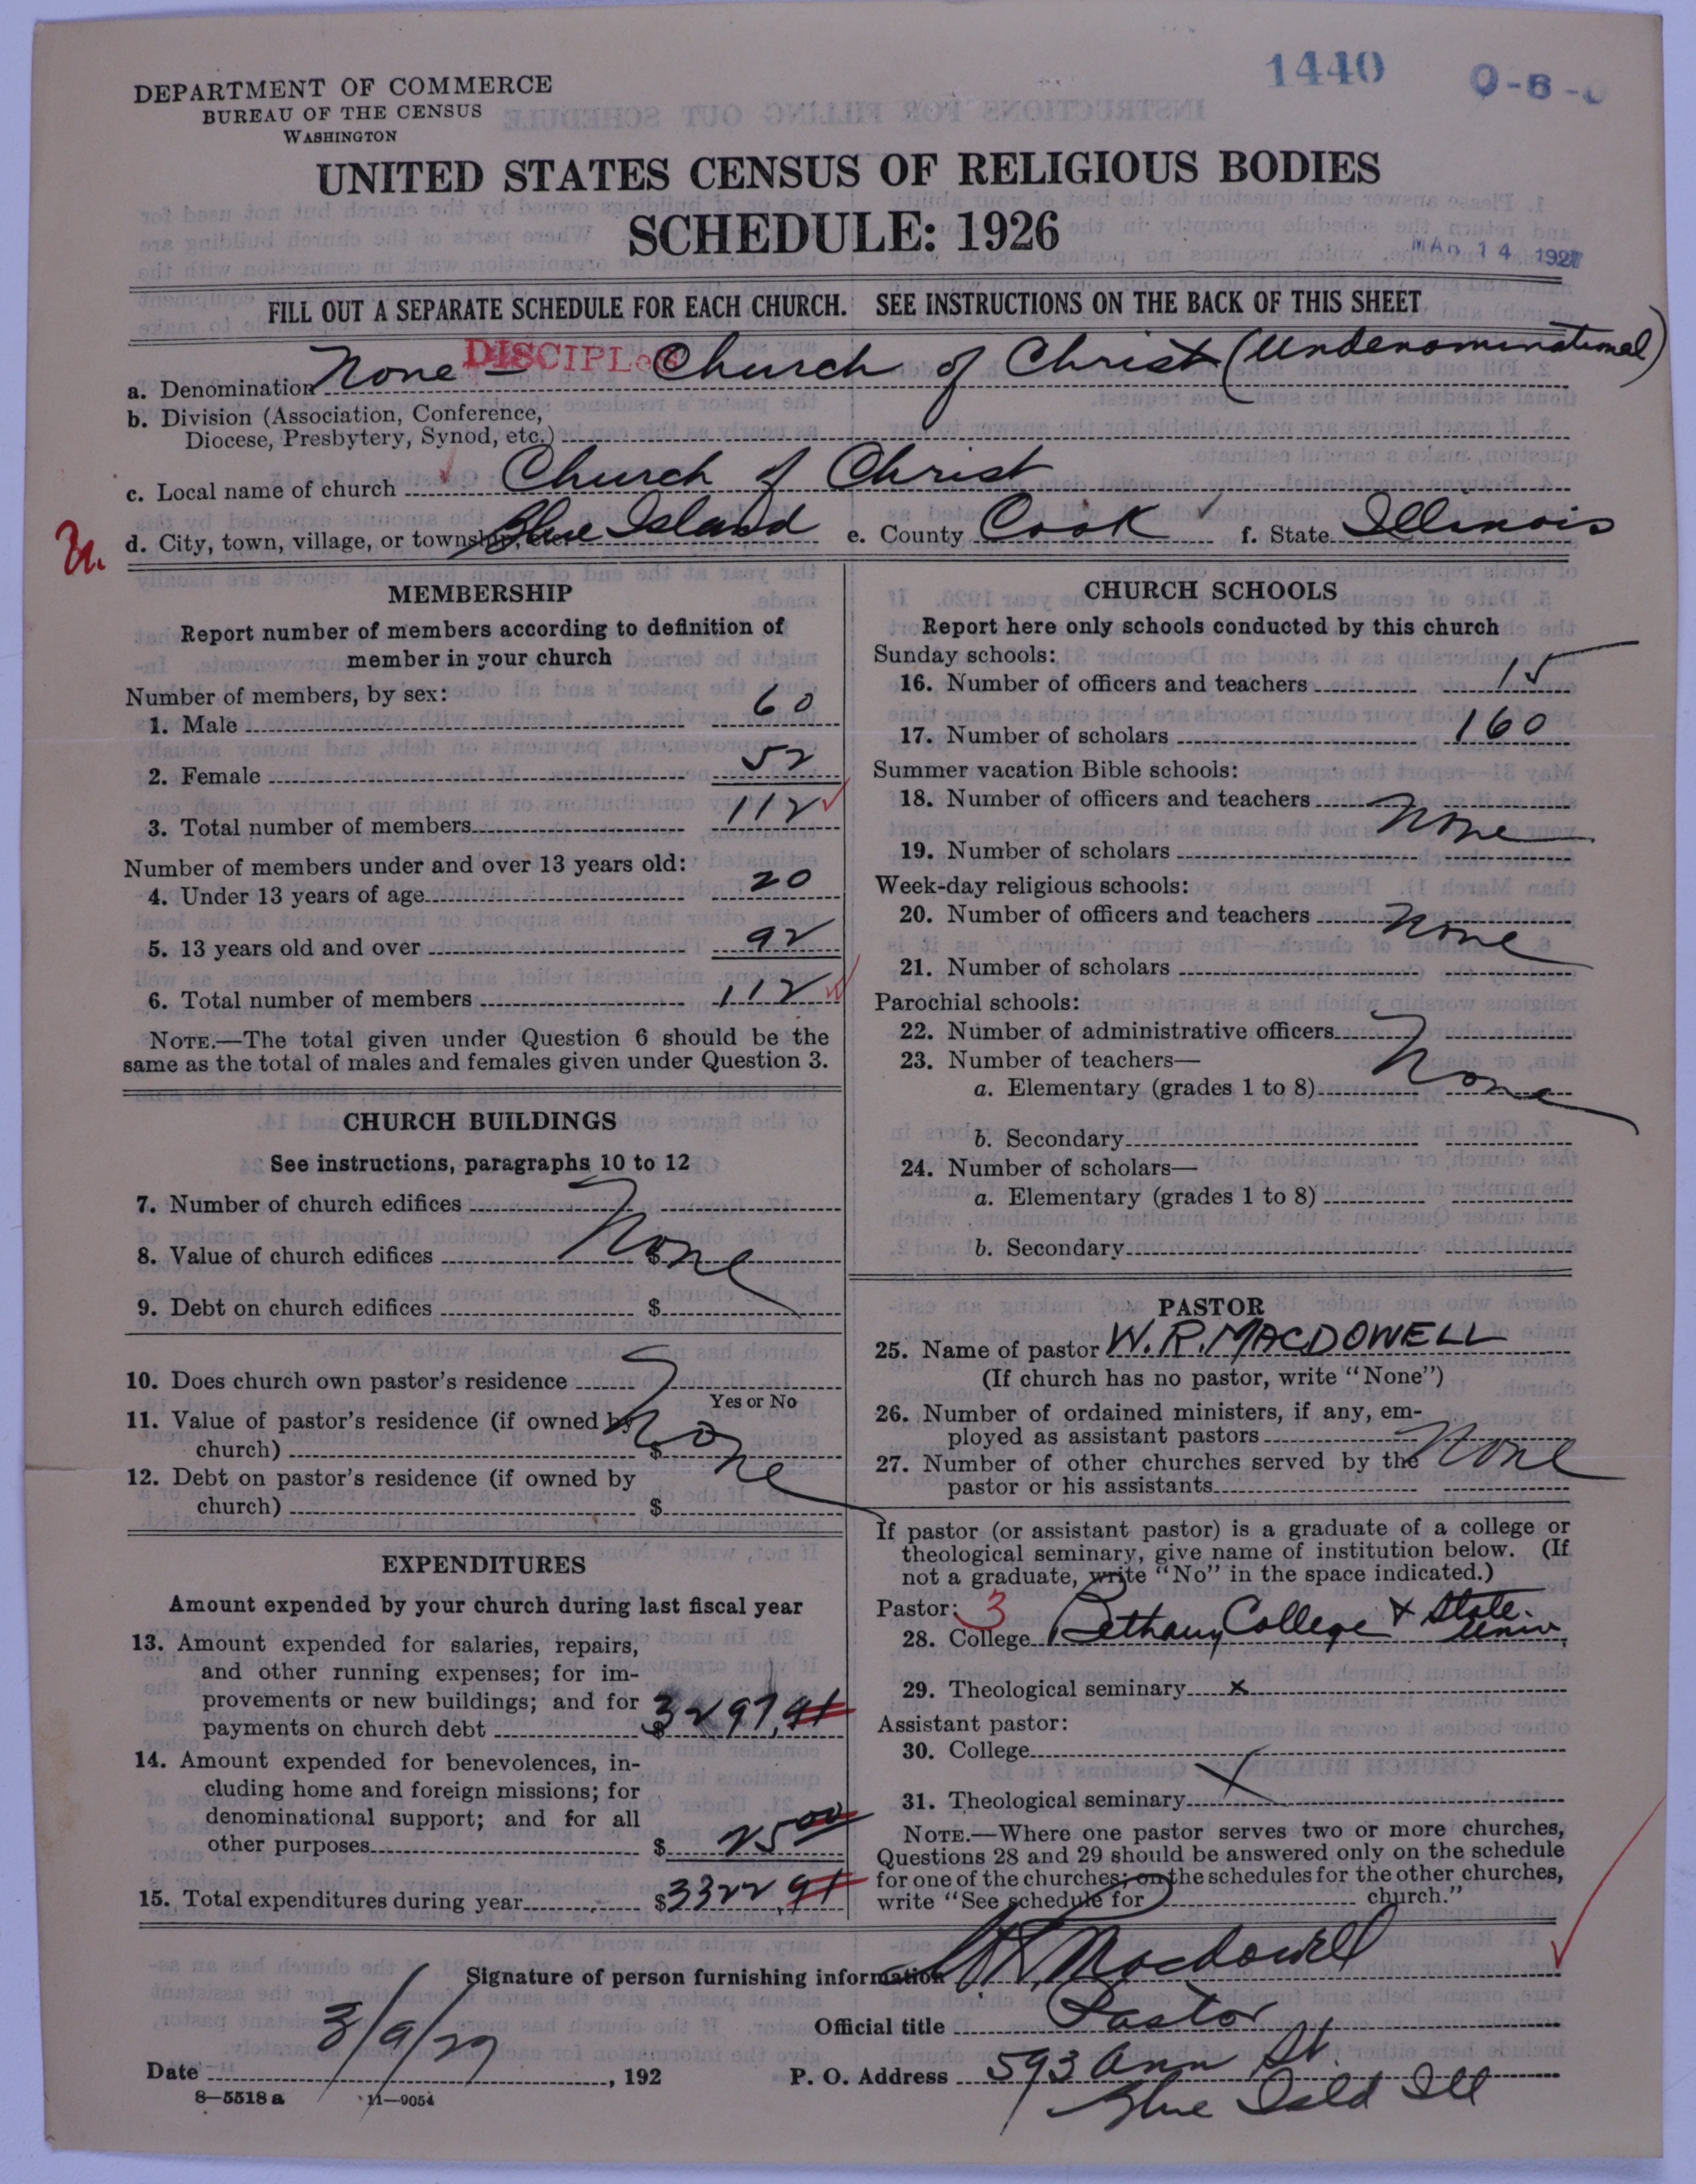 1440 0-6-0
DEPARTMENT OF COMMERCE
BUREAU OF THE CENSUS
WASHINGTON
UNITED STATES CENSUS OF RELIGIOUS BODIES
SCHEDULE: 1926
MAR 14 1927
FILL OUT A SEPARATE SCHEDULE FOR EACH CHURCH. SEE INSTRUCTIONS ON THE BACK OF THIS SHEET
a. Denomination None - DISCIPLes Church of Christ (Undenominational)
b. Division (Association, Conference,
Diocese, Presbytery, Synod, etc.)
c. Local name of church Church of Christ
d. City, town, village, or township, etc. Blue Island e. County Cook f. State Illinois
MEMBERSHIP
Report number of members according to definition of
member in your church
Number of members, by sex:
1. Male 60
2. Female 52
3. Total number of members 112
Number of members under and over 13 years old:
4. Under 13 years of age 20
5. 13 years old and over 92
6. Total number of members 112
NOTE.—The total given under Question 6 should be the
same as the total of males and females given under Question 3.
CHURCH BUILDINGS
See instructions, paragraphs 10 to 12
7. Number of church edifices
8. Value of church edifices $ None
9. Debt on church edifices $
10. Does church own pastor's residence
Yes or No
11. Value of pastor's residence (if owned by
church) $ None
12. Debt on pastor's residence (if owned by
church) $
EXPENDITURES
Amount expended by your church during last fiscal year
13. Amount expended for salaries, repairs,
and other running expenses; for im-
provements or new buildings; and for
payments on church debt $ 3297.91
14. Amount expended for benevolences, in-
cluding home and foreign missions; for
denominational support; and for all
other purposes $ 25 00
15. Total expenditures during year $ 3322.91
CHURCH SCHOOLS
Report here only schools conducted by this church
Sunday schools:
16. Number of officers and teachers 15
17. Number of scholars 160
Summer vacation Bible schools:
18. Number of officers and teachers None
19. Number of scholars
Week-day religious schools:
20. Number of officers and teachers None
21. Number of scholars
Parochial schools:
22. Number of administrative officers
23. Number of teachers—
a. Elementary (grades 1 to 8) None
b. Secondary
24. Number of scholars—
a. Elementary (grades 1 to 8)
b. Secondary
PASTOR
25. Name of pastor W. R. MACDOWELL
(If church has no pastor, write "None")
26. Number of ordained ministers, if any, em-
ployed as assistant pastors
27. Number of other churches served by the None
pastor or his assistants
If pastor (or assistant pastor) is a graduate of a college or
theological seminary, give name of institution below. (If
not a graduate, write "No" in the space indicated.)
Pastor: 3
28. College Bethany College & State Univ.
29. Theological seminary x
Assistant pastor:
30. College
31. Theological seminary
NOTE.—Where one pastor serves two or more churches,
Questions 28 and 29 should be answered only on the schedule
for one of the churches; on the schedules for the other churches,
write "See schedule for church."
Signature of person furnishing information W R Macdowell
Official title Pastor
Date 3/9/27, 192 P. O. Address 593 Ann St.
8—5518 a 11—9054 Blue Isld Ill